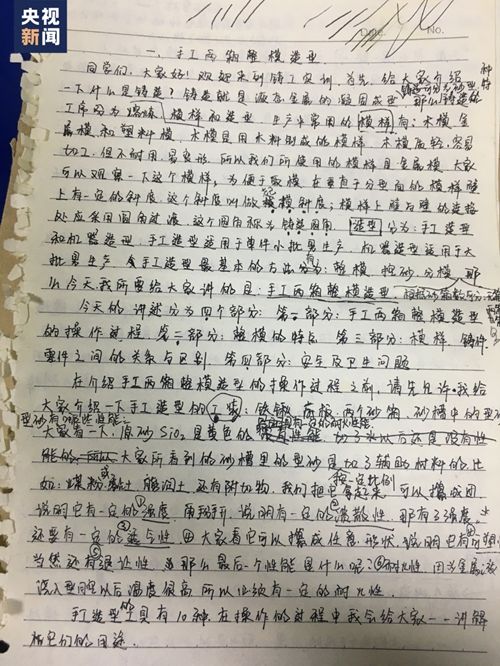 央视
新闻
Date. No.
一、手工两箱整模造型.
同学们,大家好!欢迎来到铸工实训,首先,给大家介绍
一下什么是铸造?铸造就是液态金属的凝固成型
工序因为 模样和造型,生产中常用的模样有:木模、金
属模和塑料模,木模是用木料制成的模样,木模质轻,容易
加工,但不耐用,易变形,所以我们所使用的模样是金属模,大家
可以观察一下这个模样,为便于取模,在垂直于分型面的模样壁
上有一定的斜度,这个斜度叫做 模斜度;模样上壁与壁的连接
处应采用圆角过渡,这个圆角称为铸造圆角.造型分为:手工造型
和机器造型,手工造型适用于单件小批量生产,机器造型适用于大
批量生产,手工造型最基本的方法分为:整模、挖砂、分模,那
么今天我所要给大家讲的是:手工两箱整模造型,
今天的讲述分为四个部分:第一部分:手工两箱整模造型
的操作过程 第二部分:整模的特点 第三部分:模样、铸件、
零件之间的关系与区别 第四部分:安全及卫生问题
在介绍手工两箱整模造型的操作过程之前,请先允许我给
大家介绍一下手工造型的工装:铁锹、底板、两个砂箱、砂槽中的型砂
大家看一下,原砂SiO₂是黄色的
能的 大家所看到的砂槽里的型砂是加了辅助材料的 比
如:煤粉或黏土、膨润土 还有附加物,我们按一定比例把它拿起来,可以攥成团
说明它有一定的①强度,再 开,说明有一定的②溃散性,那有了强度,
还要有一定的③透气性,④大家看它可以攥成任意形状,说明它有可塑性
当然还有⑤退让性,那么最后一个性能是什么呢?⑥耐火性,因为金属液
浇入型腔以后温度很高,所以必须有一定的耐火性.
手工造型的工具有10种,在操作的过程中我会给大家一一讲解
它们的用途.